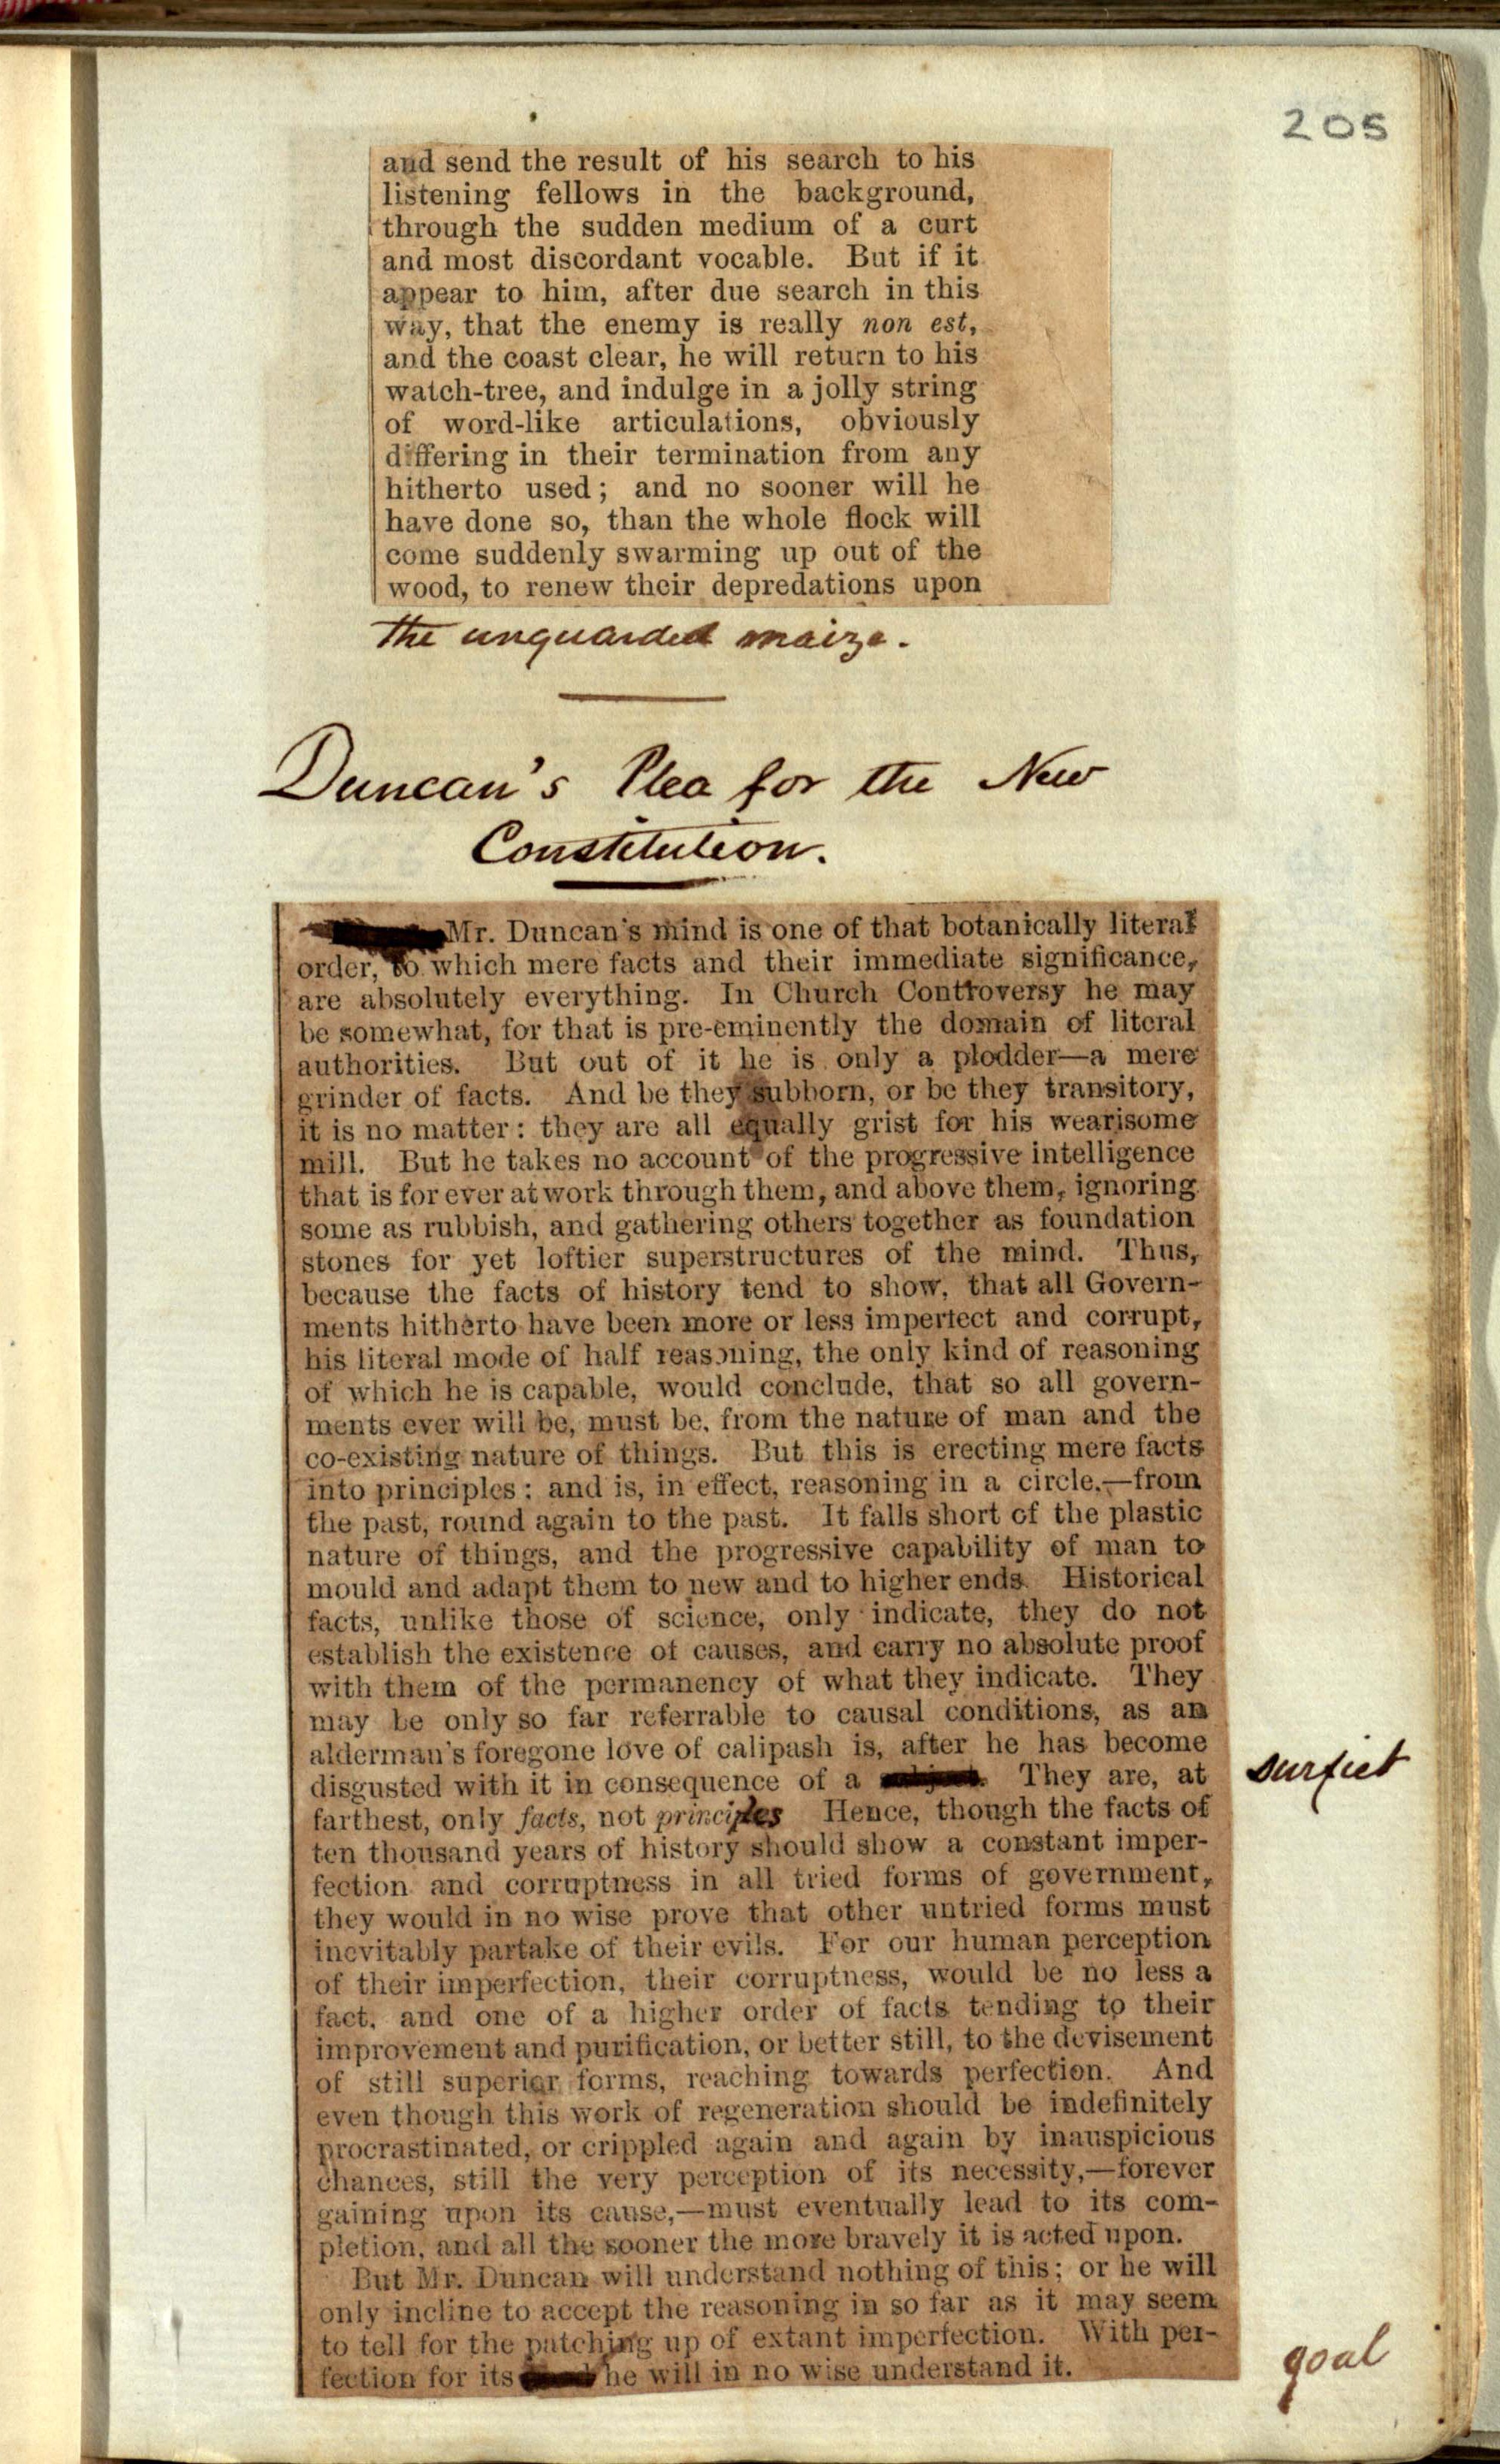 205
and send the result of his search to his
listening fellows in the background,
through the sudden medium of a curt
and most discordant vocable. But if it
appear to him, after due search in this
way, that the enemy is really non est,
and the coast clear, he will return to his
watch-tree, and indulge in a jolly string
of word-like articulations, obviously
differing in their termination from any
hitherto used; and no sooner will he
have done so, than the whole flock will
come suddenly swarming up out of the
wood, to renew their depredations upon
the unguarded maize.
Duncan's Plea for the New
Constitution.
Mr. Duncan's mind is one of that botanically literal
order, to which mere facts and their immediate significance,
are absolutely everything. In Church Controversy he may
be somewhat, for that is pre-eminently the domain of literal
authorities. But out of it he is only a plodder—a mere
grinder of facts. And be they subborn, or be they transitory,
it is no matter: they are all equally grist for his wearisome
mill. But he takes no account of the progressive intelligence
that is for ever at work through them, and above them, ignoring
some as rubbish, and gathering others together as foundation
stones for yet loftier superstructures of the mind. Thus,
because the facts of history tend to show, that all Govern-
ments hitherto have been more or less imperfect and corrupt,
his literal mode of half reasoning, the only kind of reasoning
of which he is capable, would conclude, that so all govern-
ments ever will be, must be, from the nature of man and the
co-existing nature of things. But this is erecting mere facts
into principles: and is, in effect, reasoning in a circle.—from
the past, round again to the past. It falls short of the plastic
nature of things, and the progressive capability of man to
mould and adapt them to new and to higher ends. Historical
facts, unlike those of science, only indicate, they do not
establish the existence of causes, and carry no absolute proof
with them of the permanency of what they indicate. They
may be only so far referrable to causal conditions, as an
alderman's foregone love of calipash is, after he has become
disgusted with it in consequence of a They are, at surfiet
farthest, only facts, not principles Hence, though the facts of
ten thousand years of history should show a constant imper-
fection and corruptness in all tried forms of government,
they would in no wise prove that other untried forms must
inevitably partake of their evils. For our human perception
of their imperfection, their corruptness, would be no less a
fact, and one of a higher order of facts tending to their
improvement and purification, or better still, to the devisement
of still superior forms, reaching towards perfection. And
even though this work of regeneration should be indefinitely
procrastinated, or crippled again and again by inauspicious
chances, still the very perception of its necessity,—forever
gaining upon its cause,—must eventually lead to its com-
pletion, and all the sooner the more bravely it is acted upon.
But Mr. Duncan will understand nothing of this; or he will
only incline to accept the reasoning in so far as it may seem
to tell for the patching up of extant imperfection. With per-
fection for its he will in no wise understand it. goal